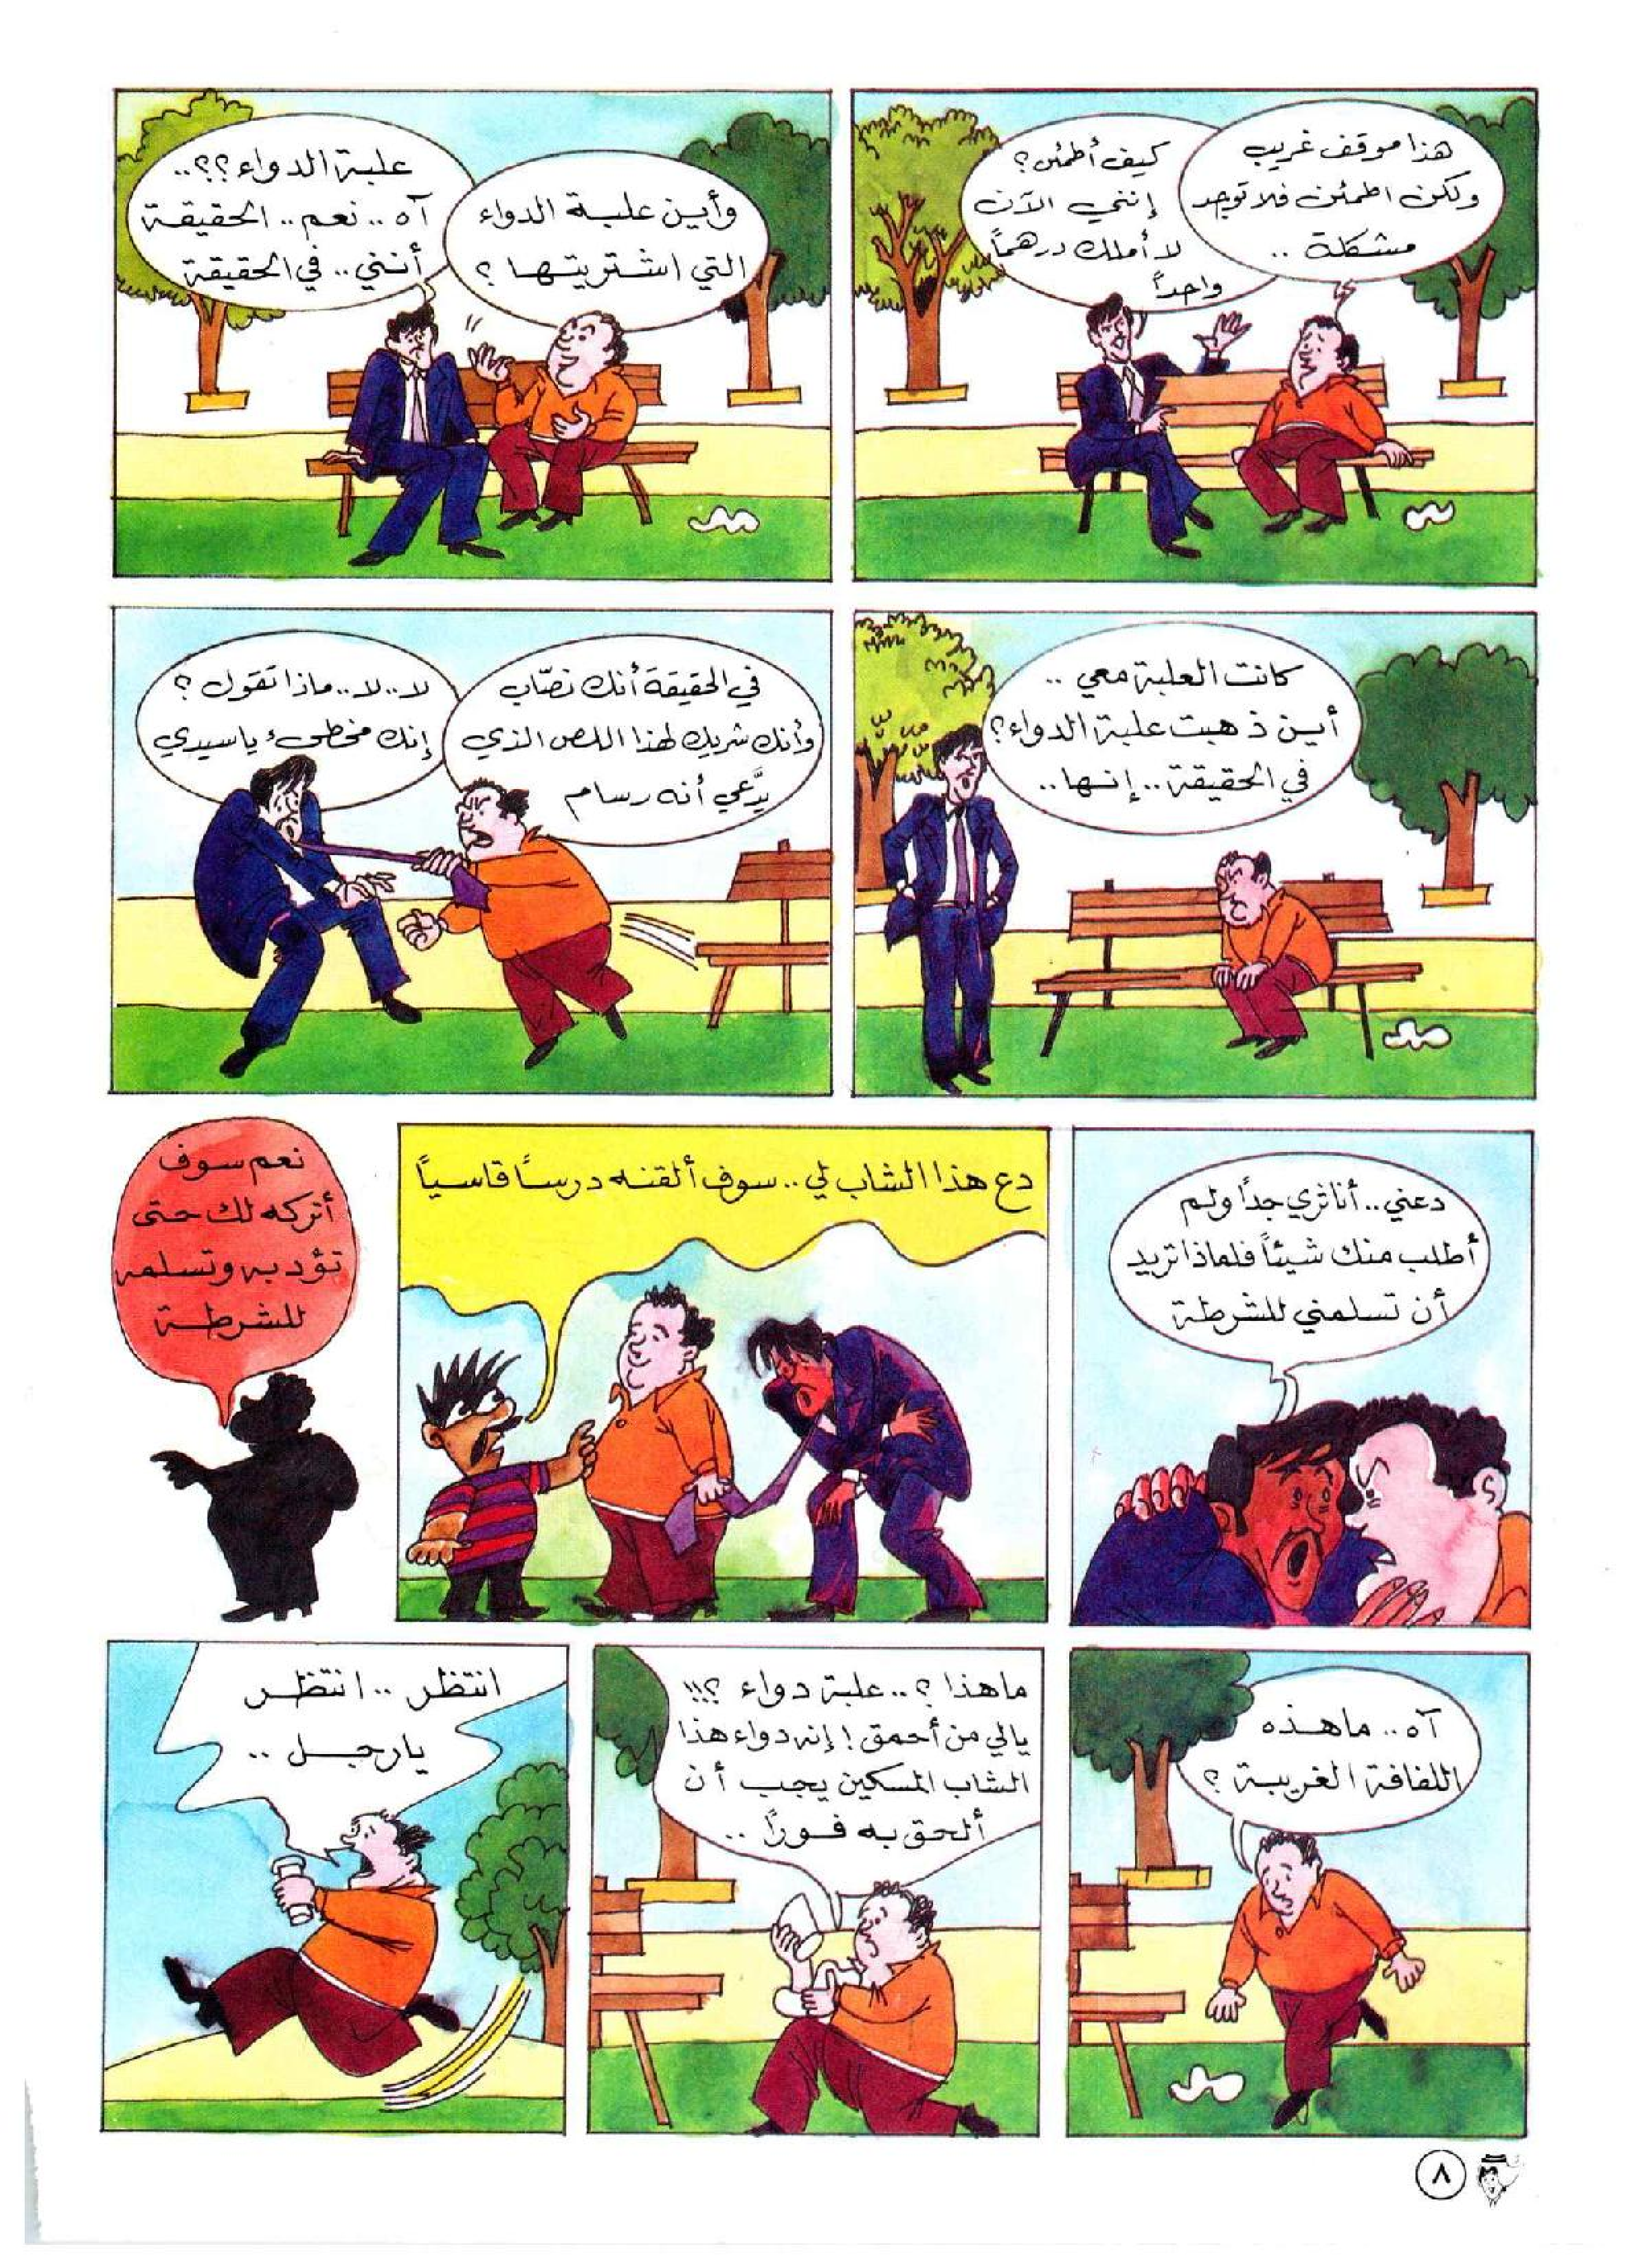 هذا موقف غريب
ولكن اطمئن فلا توجد
مشكلة ..
كيف أطمئن؟
إنني الآن
لا أملك درهماً
واحداً
وأين علبة الدواء
التي اشتريتها ؟
علبة الدواء ؟؟..
آه .. نعم .. الحقيقة
أنني .. في الحقيقة
كانت العلبة معي ..
أين ذهبت علبة الدواء؟
في الحقيقة .. إنها ..
في الحقيقة أنك نصّاب
وأنك شريك لهذا اللص الذي
يدَّعي أنه رسام
لا .. لا .. ماذا تقول ؟
إنك مخطىء ياسيدي
دعني .. أنا ثري جداً ولم
أطلب منك شيئاً فلماذا تريد
أن تسلمني للشرطة
دع هذا الشاب لي .. سوف ألقنه درساً قاسياً
نعم سوف
أتركه لك حتى
تؤدبه وتسلمه
للشرطة
آه .. ماهذه
اللفافة الغريبة ؟
ماهذا ؟ .. علبة دواء ؟!!
يالي من أحمق ! إنه دواء هذا
الشاب المسكين يجب أن
ألحق به فوراً ..
انتظر .. انتظر
يارجل ..
٨